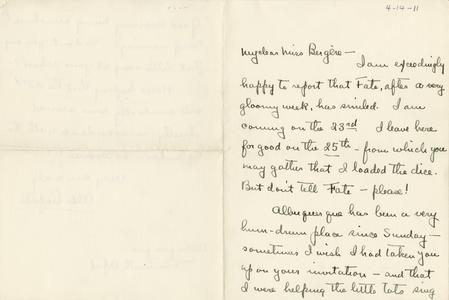 4-14-11
My dear Miss Bergère —
I am exceedingly
happy to report that Fate, after a very
gloomy week, has smiled. I am
coming on the 23rd I leave here
for good on the 25th - from which you
may gather that I loaded the dice.
But don't tell Fate — please!
Albuquerque has been a very
hum-drum place since Sunday —
sometimes I wish I had taken you
up on your invitation — and that
I were helping the little tots sing